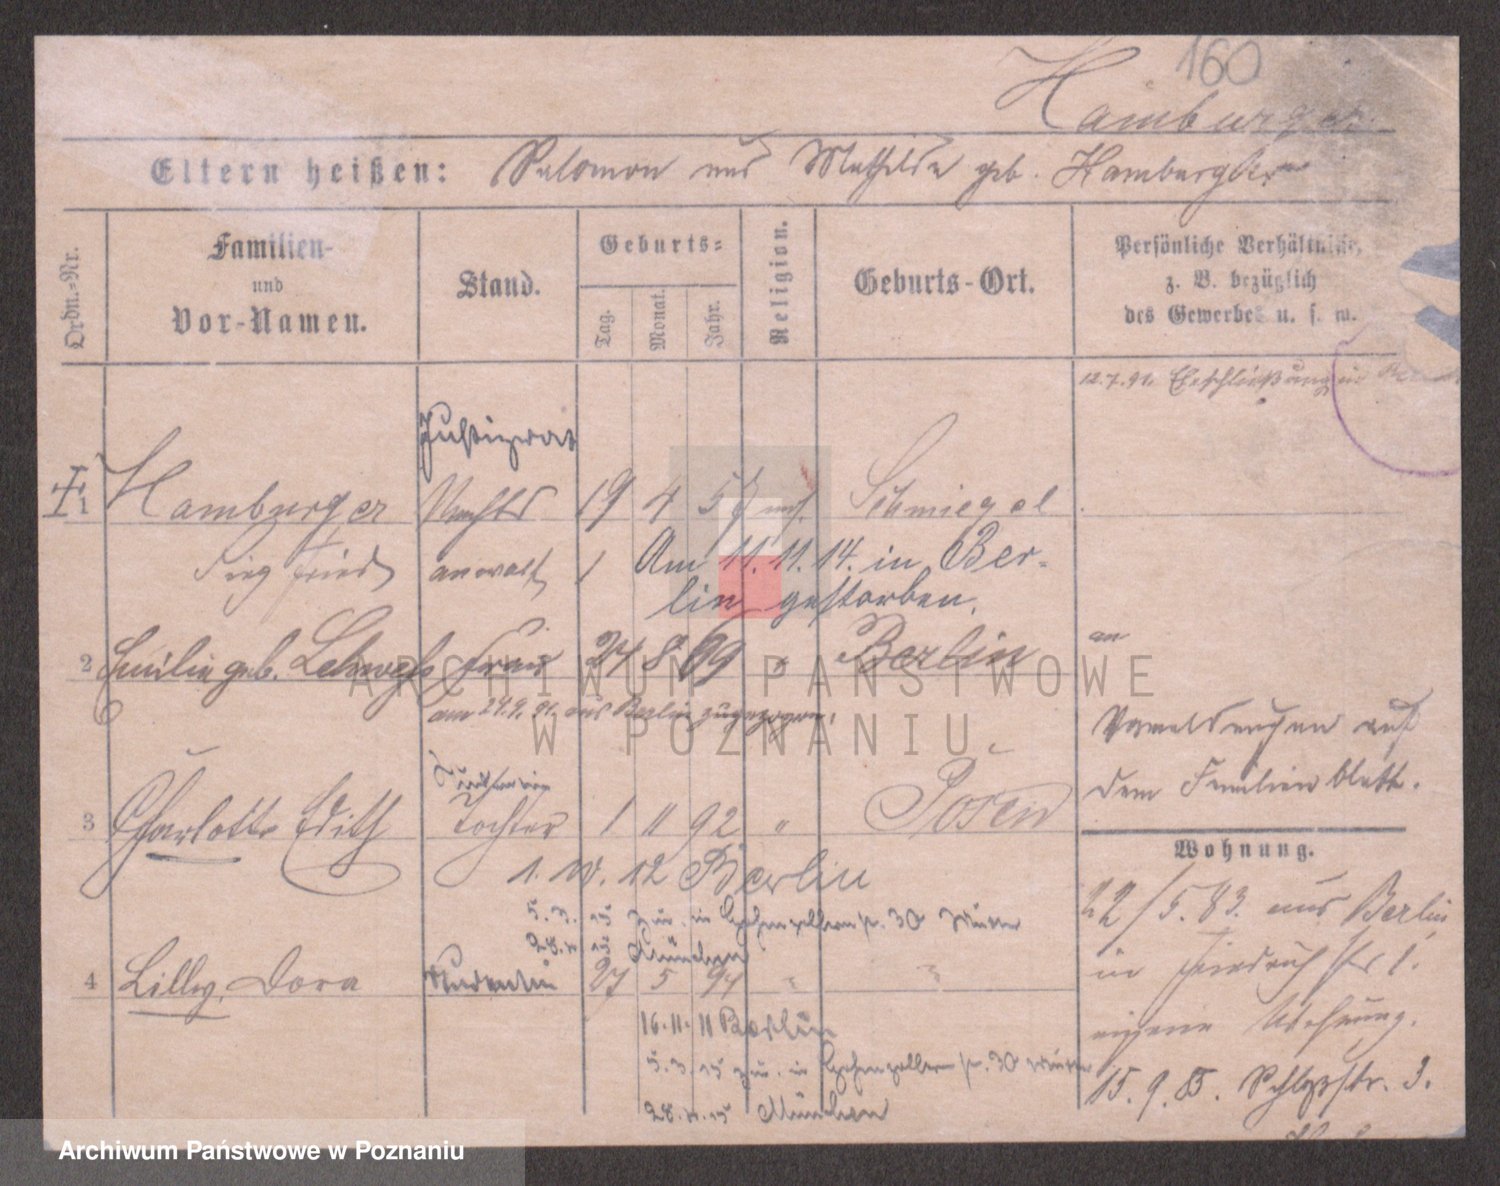 160
Hamburger
Eltern heißen: Salomon und Mathilde geb. Hamburger
Ordn.-Nr.
Familien-
und
Vor-Namen.
Stand.
Geburts-
Tag.
Monat.
Jahr.
Religion.
Geburts-Ort.
Persönliche Verhältnisse,
z. B. bezüglich
des Gewerbes u. s. w.
12.7.91. Eheschließung in
Justizrat
1 Hamburger Rechts 19 4 57 mos. Schmiegel
Siegfried anwalt Am 11.11.14. in Ber-
lin gestorben.
2 Emilie geb. Frau 27 8 69 " Berlin
am 24.9.91. aus Berlin zugezogen.
an
Vermeldungen auf
dem Familienblatt.
3 Charlotte Edith Tochter 1 11 92 " Posen
1. 10. 12 Berlin
5. 3. 15 zur. in Hohenzollernstr. 30 Mutter
28. 4. 15 München
4 Lilly Dora Studentin 27 5 94 " "
16. 11. 11 Berlin
5. 3. 15 zur. in Hohenzollernstr. 30 Mutter
28. 4. 15 München
Wohnung.
22/5.83. aus Berlin
in Friedrichstr 1.
eigene Wohnung.
15. 9. 85. Schloßstr. 3.
ARCHIWUM PAŃSTWOWE
W POZNANIU
Archiwum Państwowe w Poznaniu